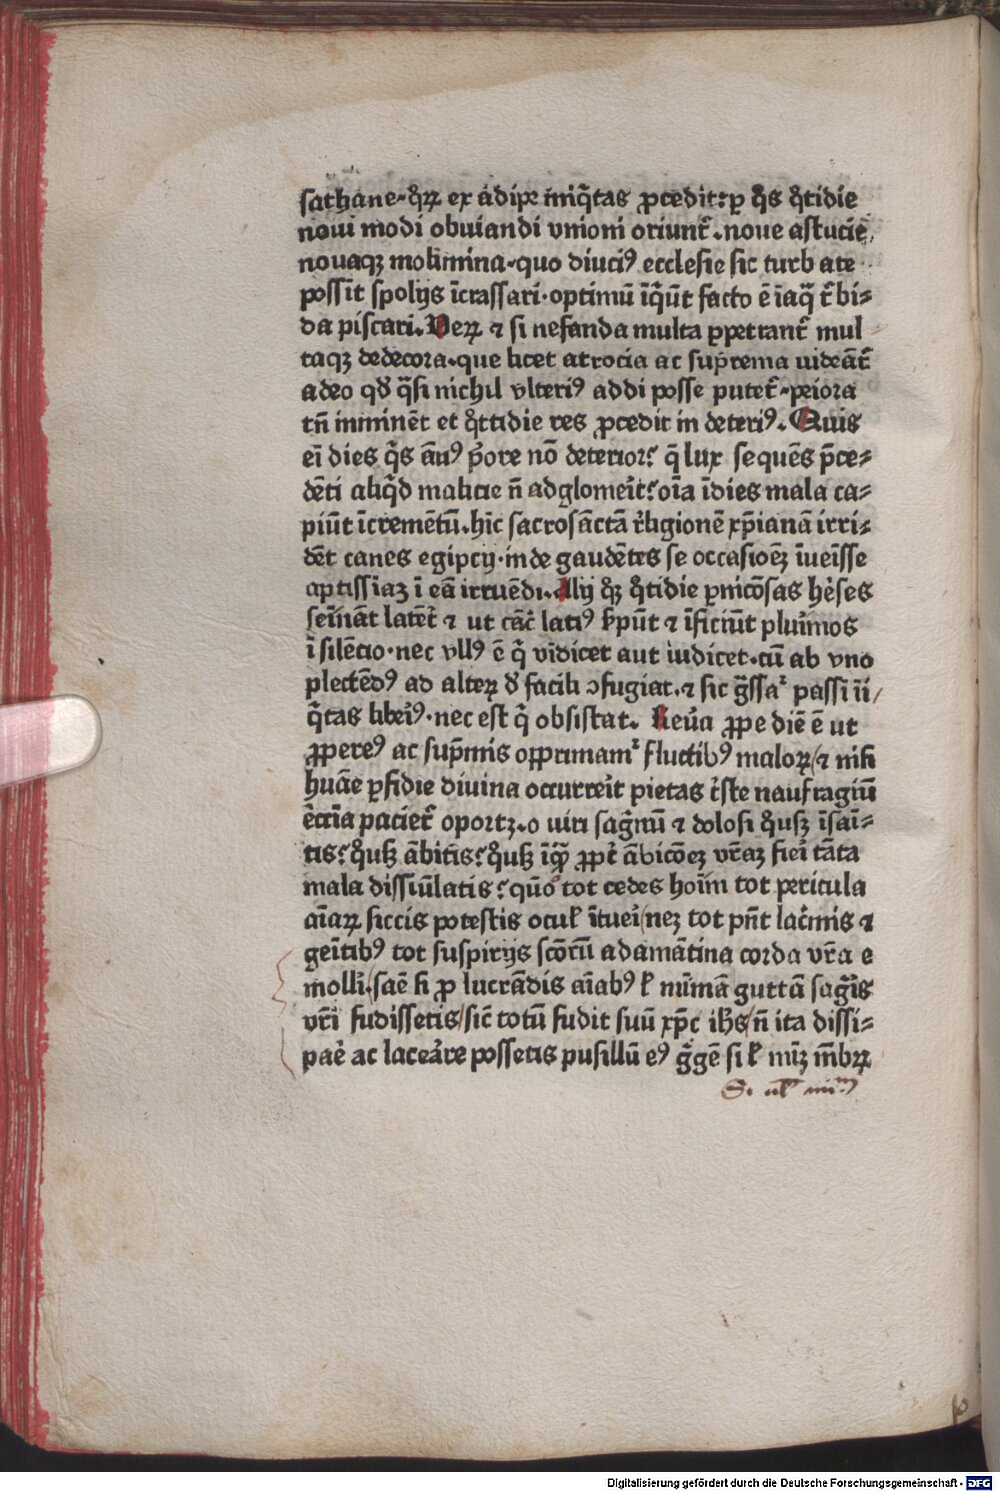 sathane·qͦꝝ ex adipe iniq̄tas ꝓcedit:ꝑ qͦs qͦtidie
noui modi obuiandi vnioni oriunt᷑.noue astucie,
nouaqꝫ molimina·quo diuciꝰ ecclesie sic turbate
possīt spolijs īcrassari·optimū īq̄ūt facto ē ī aq̄ t᷑bi⸗
da piscari.Veꝝ ⁊ si nefanda multa ꝑpetrant᷑ mul
taqꝫ dedecora·que licet atrocia ac sup̄rema uideāt᷑
adeo qd̛ q̄si nichil vlteriꝰ addi posse putet᷑·peiora
tn̄ iminēt et qͦttidie res ꝓcedit in deteriꝰ. Quis
ei̅ dies q̄s an̄ꝰ p̄ore nō deterior? q̄ lux sequēs p̄ce⸗
dēti aliq̄d malicie n̄ adglomeīt? oīa īdies mala ca⸗
piūt īcremētū.hīc sacrosāctā r̄ligionē xp̄ianā irri⸗
dēt canes egipcij·inde gaudētes se occasioēꝫ īueīsse
aptissīaꝫ ī eā irruēdi.Alij qͦꝫ qͦtidie ꝑnicōsas hēses
semīnāt latēt᷑ ⁊ ut cāc᷑ latiꝰ ẜpūt ⁊ īficiūt pluīmos
ī silētio·nec vllꝰ ē q̄ vīdicet aut iudicet·cū ab vno
plectēdꝰ ad alteꝝ d̛ facili ꝯfugiat·⁊ sic g̃ssa᷑ passi īi/
q̄tas libeīꝰ·nec est q̄ obsistat. Reūa ꝓpe diē ē ut
ꝓpereꝰ ac sup̄mis opprimam᷑ fluctibꝰ maloꝝ/⁊ nisi
huāe ꝑfidie diuina occurreīt pietas t᷑ste naufragiū
eccīa paciet᷑ oportꝫ.o uiri sag̃nū ⁊ dolosi qͦusꝫ īsaī⸗
tis? qͦusꝫ ābitis? qͦusꝫ īqͣꝫ ꝓpt᷑ ābicōeꝫ vr̄aꝫ fieī tāta
mala dissiūlatis? quō tot cedes hoīm tot pericula
aīaꝝ siccis potestis ocul̛ ītueī/neꝫ tot pn̄t lac᷑mis ⁊
geītibꝰ tot suspirijs scōꝝ adamātina corda vr̄a e
molli᷑·saē si ꝓ lucrādis aīabꝰ ł minimā guttā sag̃is
vr̄i fudissetis/sic̄ totū fudit suū xp̄c ihs̄/n̄ ita dissi⸗
paē ac laceāre possetis pusillū eꝰ g̃gē si ł mīꝫ mēbꝝ